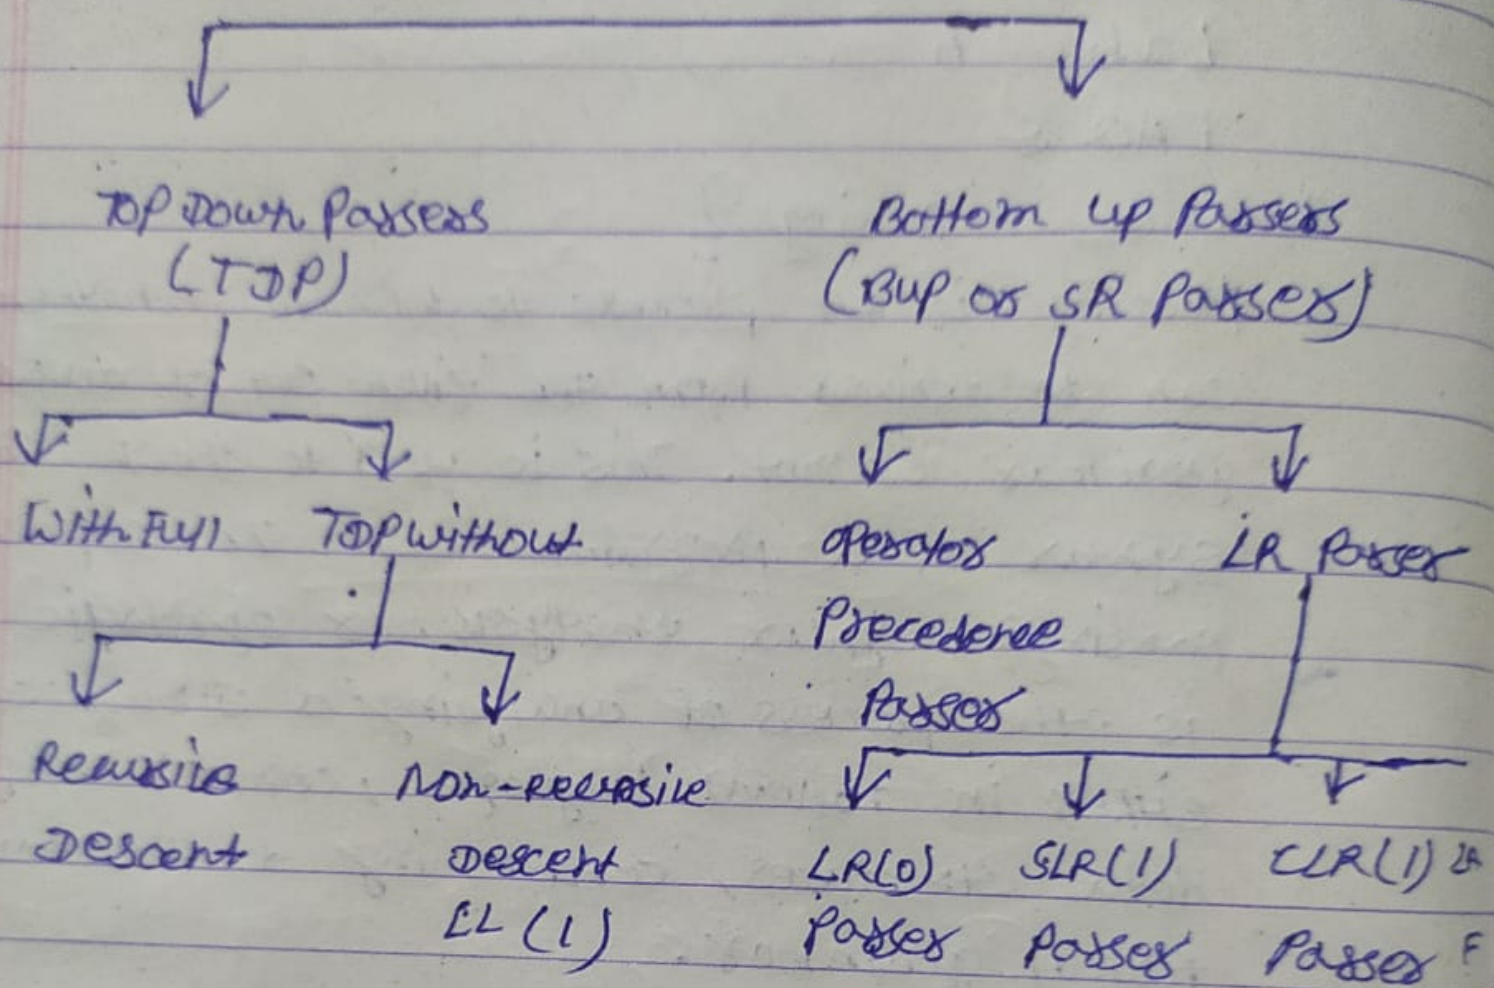 Top Down Parsers
(TDP)
Bottom Up Parsers
(BUP or SR Parser)
With Full
TDP without
Operator
Precedence
Parser
LR Parser
Recursive
Descent
Non-recursive
Descent
LL (1)
LR(0)
Parser
SLR(1)
Parser
CLR(1)
Parser